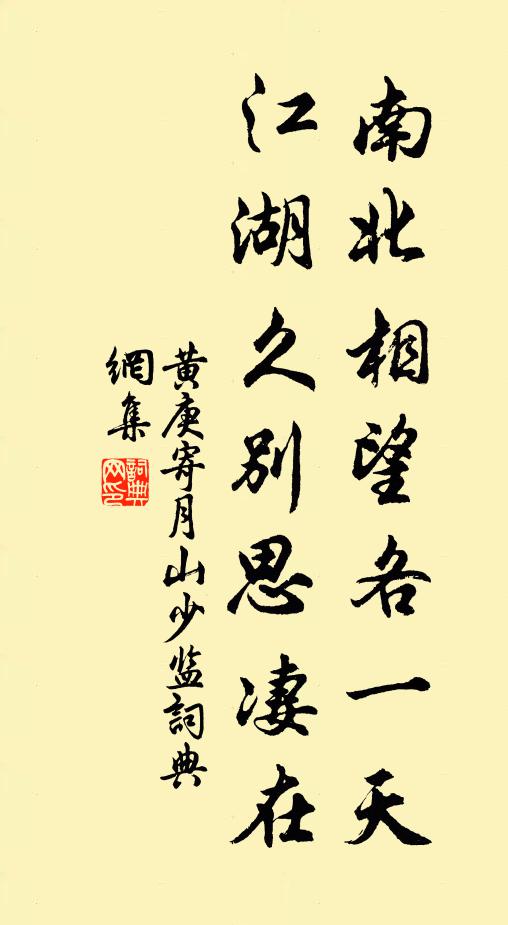 南北相望各一天
江湖久別思凄在
黄庚寄月山少监詞典
網集
詞典
网印